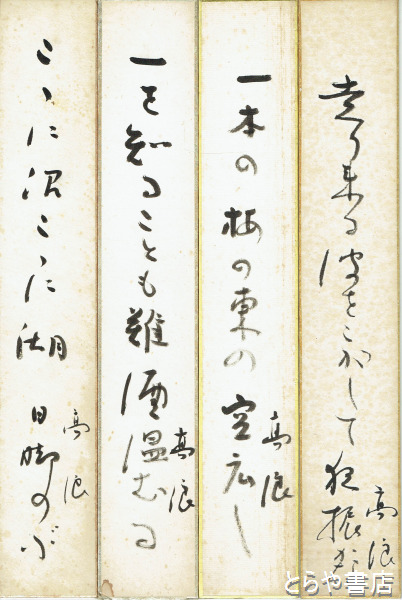 走り来る波をこがして夜振かな
高浪
一本の梅の東の空広し
高浪
一を知ることも難酒温むる
高浪
こゝに沼こゝに湖日脚のぶ
高浪
とらや書店